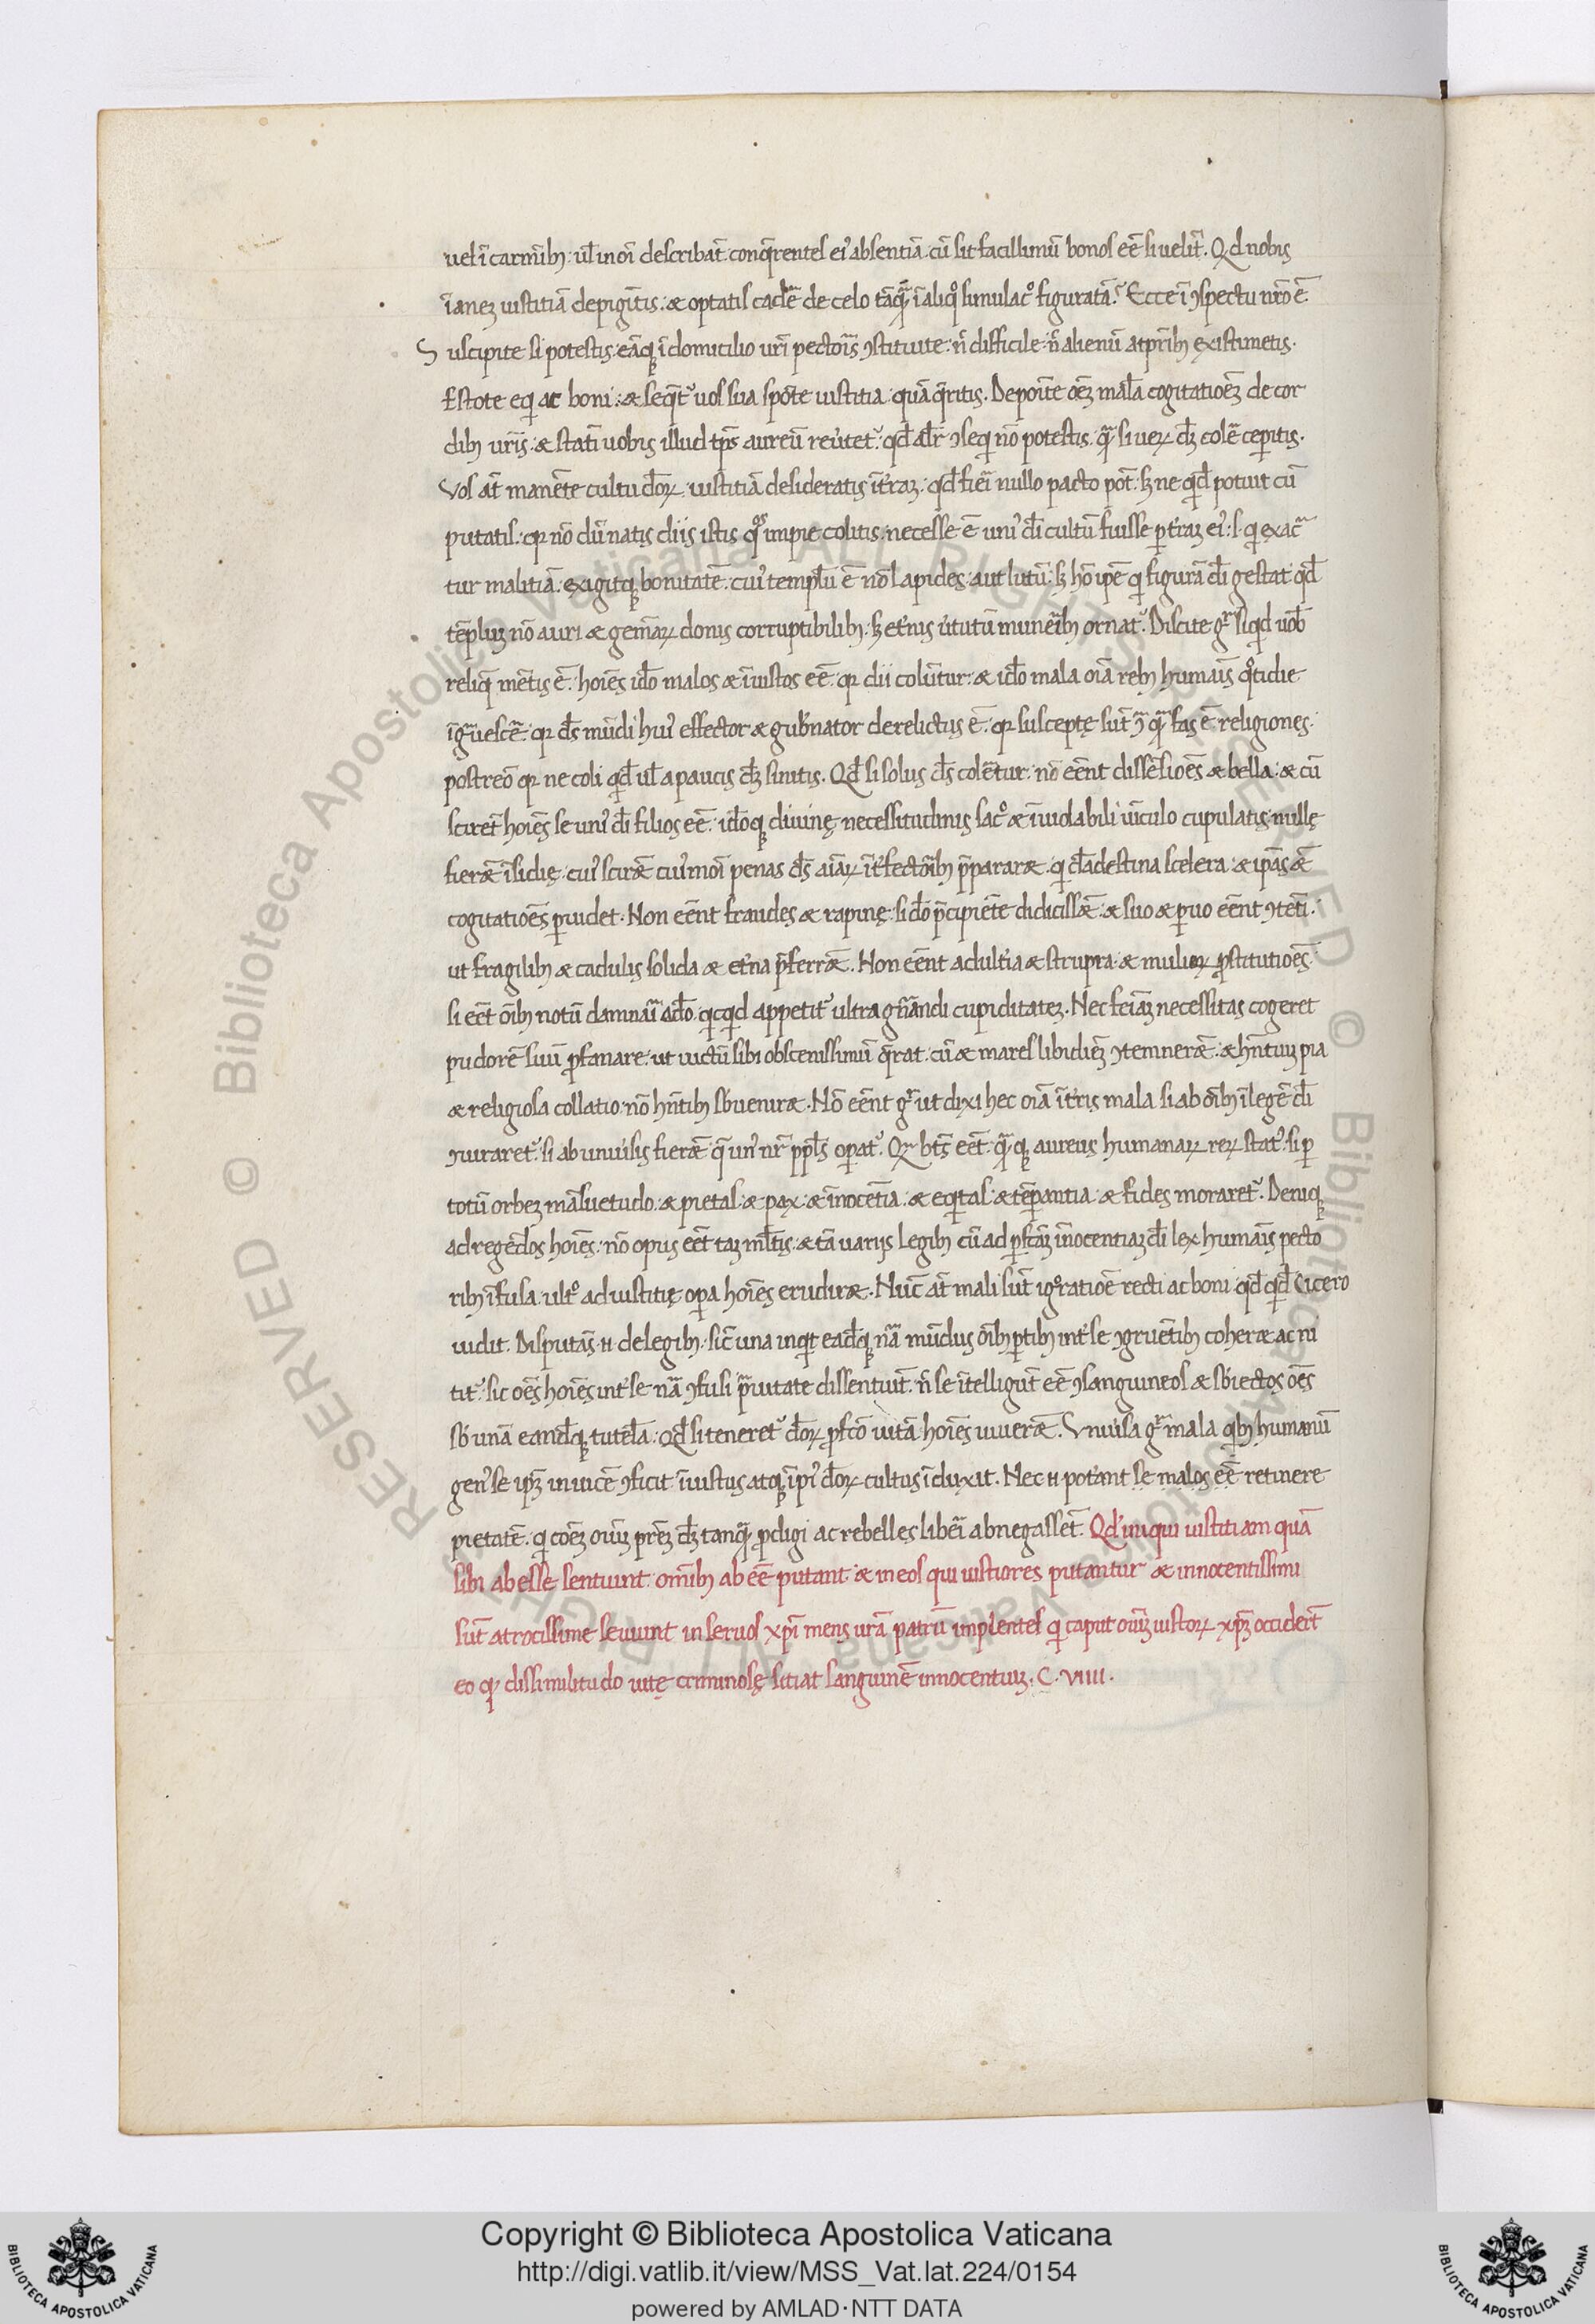 uel ī carmīb; ul̄ in or̄ describāt conq̄rentes ei' absentiā cū sit facillimū bonos eē si uelīt. Qd nobis
īanez iustitiā depigītis. æ optatis cadē de celo tāq̄ ī aliqo simulac° figuratā. Ecce ī ɔspectu nrō ē
Suscipite si potestis. eāq; ī domicilio urī pectoīs ɔstituite. n̄ difficile. n̄ alienū atprīb; existimetis.
Estote eqi ac boni. æ seqēt' uos sua spōte iustitia quā q̄ritis. Depoīte oēz mal̄a cogitatioēz de cor
dib; urīs. æ statī uobis illud tp̄s aureū reu̓tet'. qd̄ alr̄ ɔseqi nō potestis. q̄ si uerꝝ dz̄ colē cepitis.
Vos āt manēte cultu d̄orꝝ iustitiā desideratis īt̓raz. qd̄ fieī nullo pacto pōt. sz ne qd̄ potuit cū
putatis. qr nō dū natis diis istis qos impie colitis. necesse ē uni' dī cultū fuisse p t̓raz ei'. s. qi exac̄
tur malitiā. exigitq; bonitatē. cui' templ̄u ē nō lapides. aut lutū. sz hō ipē qi figurā dī gestat. qd̄
tēpluz nō auri æ gem̄arꝝ donis corruptibilib; sz et̓nis u̓tutū munerīb; ornat'. Discite g° si qd uob̄
reliq̄ mētis ē. hoīes id̄o malos æ īiustos eē qr dii colūtur. æ id̄o mala oīa reb; humaīs qotidie
īg̃uescē. qr ds̄ mūdi hui' effector æ gub̓nator derelictus ē. qr suscepte sūt ɔ̄ q̄ fas ē religiones.
postreō qr ne coli qd̄ ul̄ a paucis dz̄ sinitis. Qd̄ si solus ds̄ colētur. nō eēnt dissēsioēs æ bella. æ cū
scirēt hoīes se uni' dī filios eē. id̄oq; diuine necessitudinis sac° æ īuiolabili uīculo cupulatis nulle
fierǣ īsidie. cui' scirǣ cui'moī penas ds̄ aīarꝝ īt̓fectoīb; p̄pararæ. qi cl̄adestina scelera. æ ipas ǣ
cogitatioēs puidet. Non eēnt fraudes æ rapine. si d̄o p̄cipiēte didicissǣ. æ suo æ puo eēnt ɔtēti.
ut fragilib; æ caducis solida æ et̓na p̄ferrǣ. Non eēnt adult̓ia æ strupra. æ mulierꝝ pstitutioēs
si eēt oīb; notū damnaī a d̄o. qicqid appetit' ultra gn̄andi cupiditatez. Nec feīaz necessitas cogeret
pudorē suū pfanare. ut uictū sibi obscenissimū q̄rat. cū æ mares libidiēz ɔtemnerǣ. æ hn̄tiuz pia
æ religiosa collatio nō hn̄tib; sb̓uenirae. Nō eēnt g° ut dixi hec oīa īt̓ris mala si ab oīb; ī legē dī
ɔiuraret'. si ab uniu̓sis fierǣ q̄ un' nr̄ ppl̄s opat'. Qr bt̄s eēt q̄q; aureus humanarꝝ rerꝝ stat'. si p
totū orbez māsuetudo. æ pietas. æ pax. æ īnocētia. æ eqitas. æ tēpantia. æ fides moraret'. Deniq;
ad regēdos hoīes. nō opus eēt taz ml̄tis. æ tā uarijs legib; cū ad pfctāz īnocentiaz dī lex humaīs pecto
rib; īfusa. ult° ad iustitie opa hoīes erudirae. Nūc āt mali sūt ig°ratioē recti ac boni. qd̄ qd̄ Cicero
uidit. Disputās .n. de legib; sic̄ una inqt eadq; nā mūdus oīb; ptib; int̓ se ɔgruētib; coheræ ac ni
tit'. sic oēs hoīes int̓ se nā ɔfusi p̄uitate dissentiūt. n̄ se ītelligūt eē ɔsanguineos æ sb̓iectos oēs
sb̓ unā eandq; tutel̄a. Qd̄ si teneret' d̄orꝝ pfcō uitā hoīes uiuerǣ. Vniu̓sa g° mala qib; humanū
gen' se ipz̄ inuicē ɔficit īiustus atq; īpi' d̄orꝝ cultus īduxit. Nec .n. pot̓ant se malos eē retinere
pietatē. qi coēz oiuz prēz dz̄ tanq̄ pdigi ac rebelles liberī abnegassēt. Qd' iniqui iustitiam quā
sibi ab esse sentiunt. omīb; ab eē putant. æ in eos qui iustiores putantur æ innocentissimi
sūt atrocissime seuiunt in seruos xp̄i mens urā patrū implentes qi caput oiuz iustorꝝ xp̄z occidert̄
eo qr dissimilitudo uite criminose sitiat sanguinē innocentuz. C. VIIII.
Copyright © Biblioteca Apostolica Vaticana
http://digi.vatlib.it/view/MSS_Vat.lat.224/0154
powered by AMLAD·NTT DATA